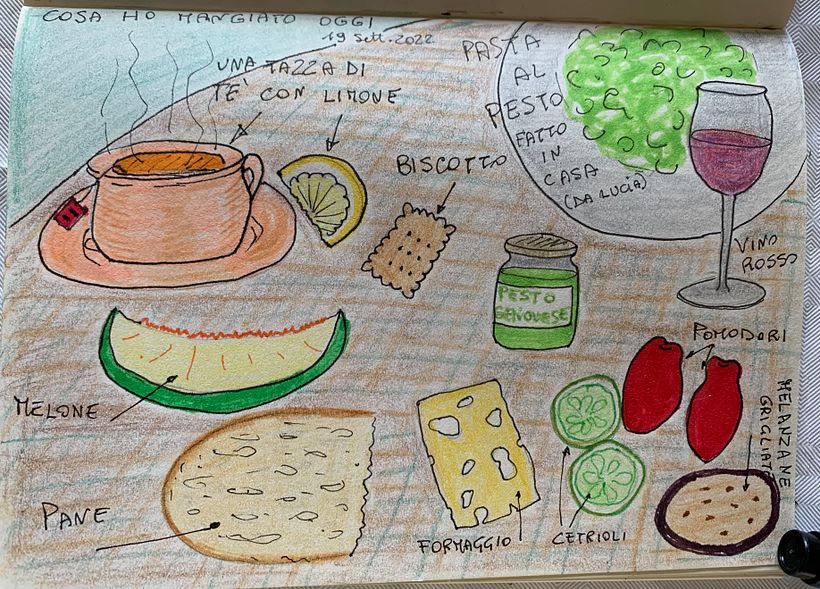 COSA HO MANGIATO OGGI
19 sett. 2022
UNA TAZZA DI
TE' CON LIMONE
BISCOTTO
PASTA
AL
PESTO
FATTO
IN
CASA
(DA LUCIA)
VINO
ROSSO
PESTO
GENOVESE
MELONE
POMODORI
MELANZANE
GRIGLIATE
PANE
FORMAGGIO
CETRIOLI